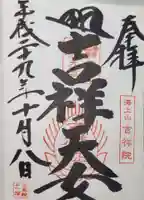 奉拝
吉祥天女
平成二十九年十月八日
海上山 吉祥院